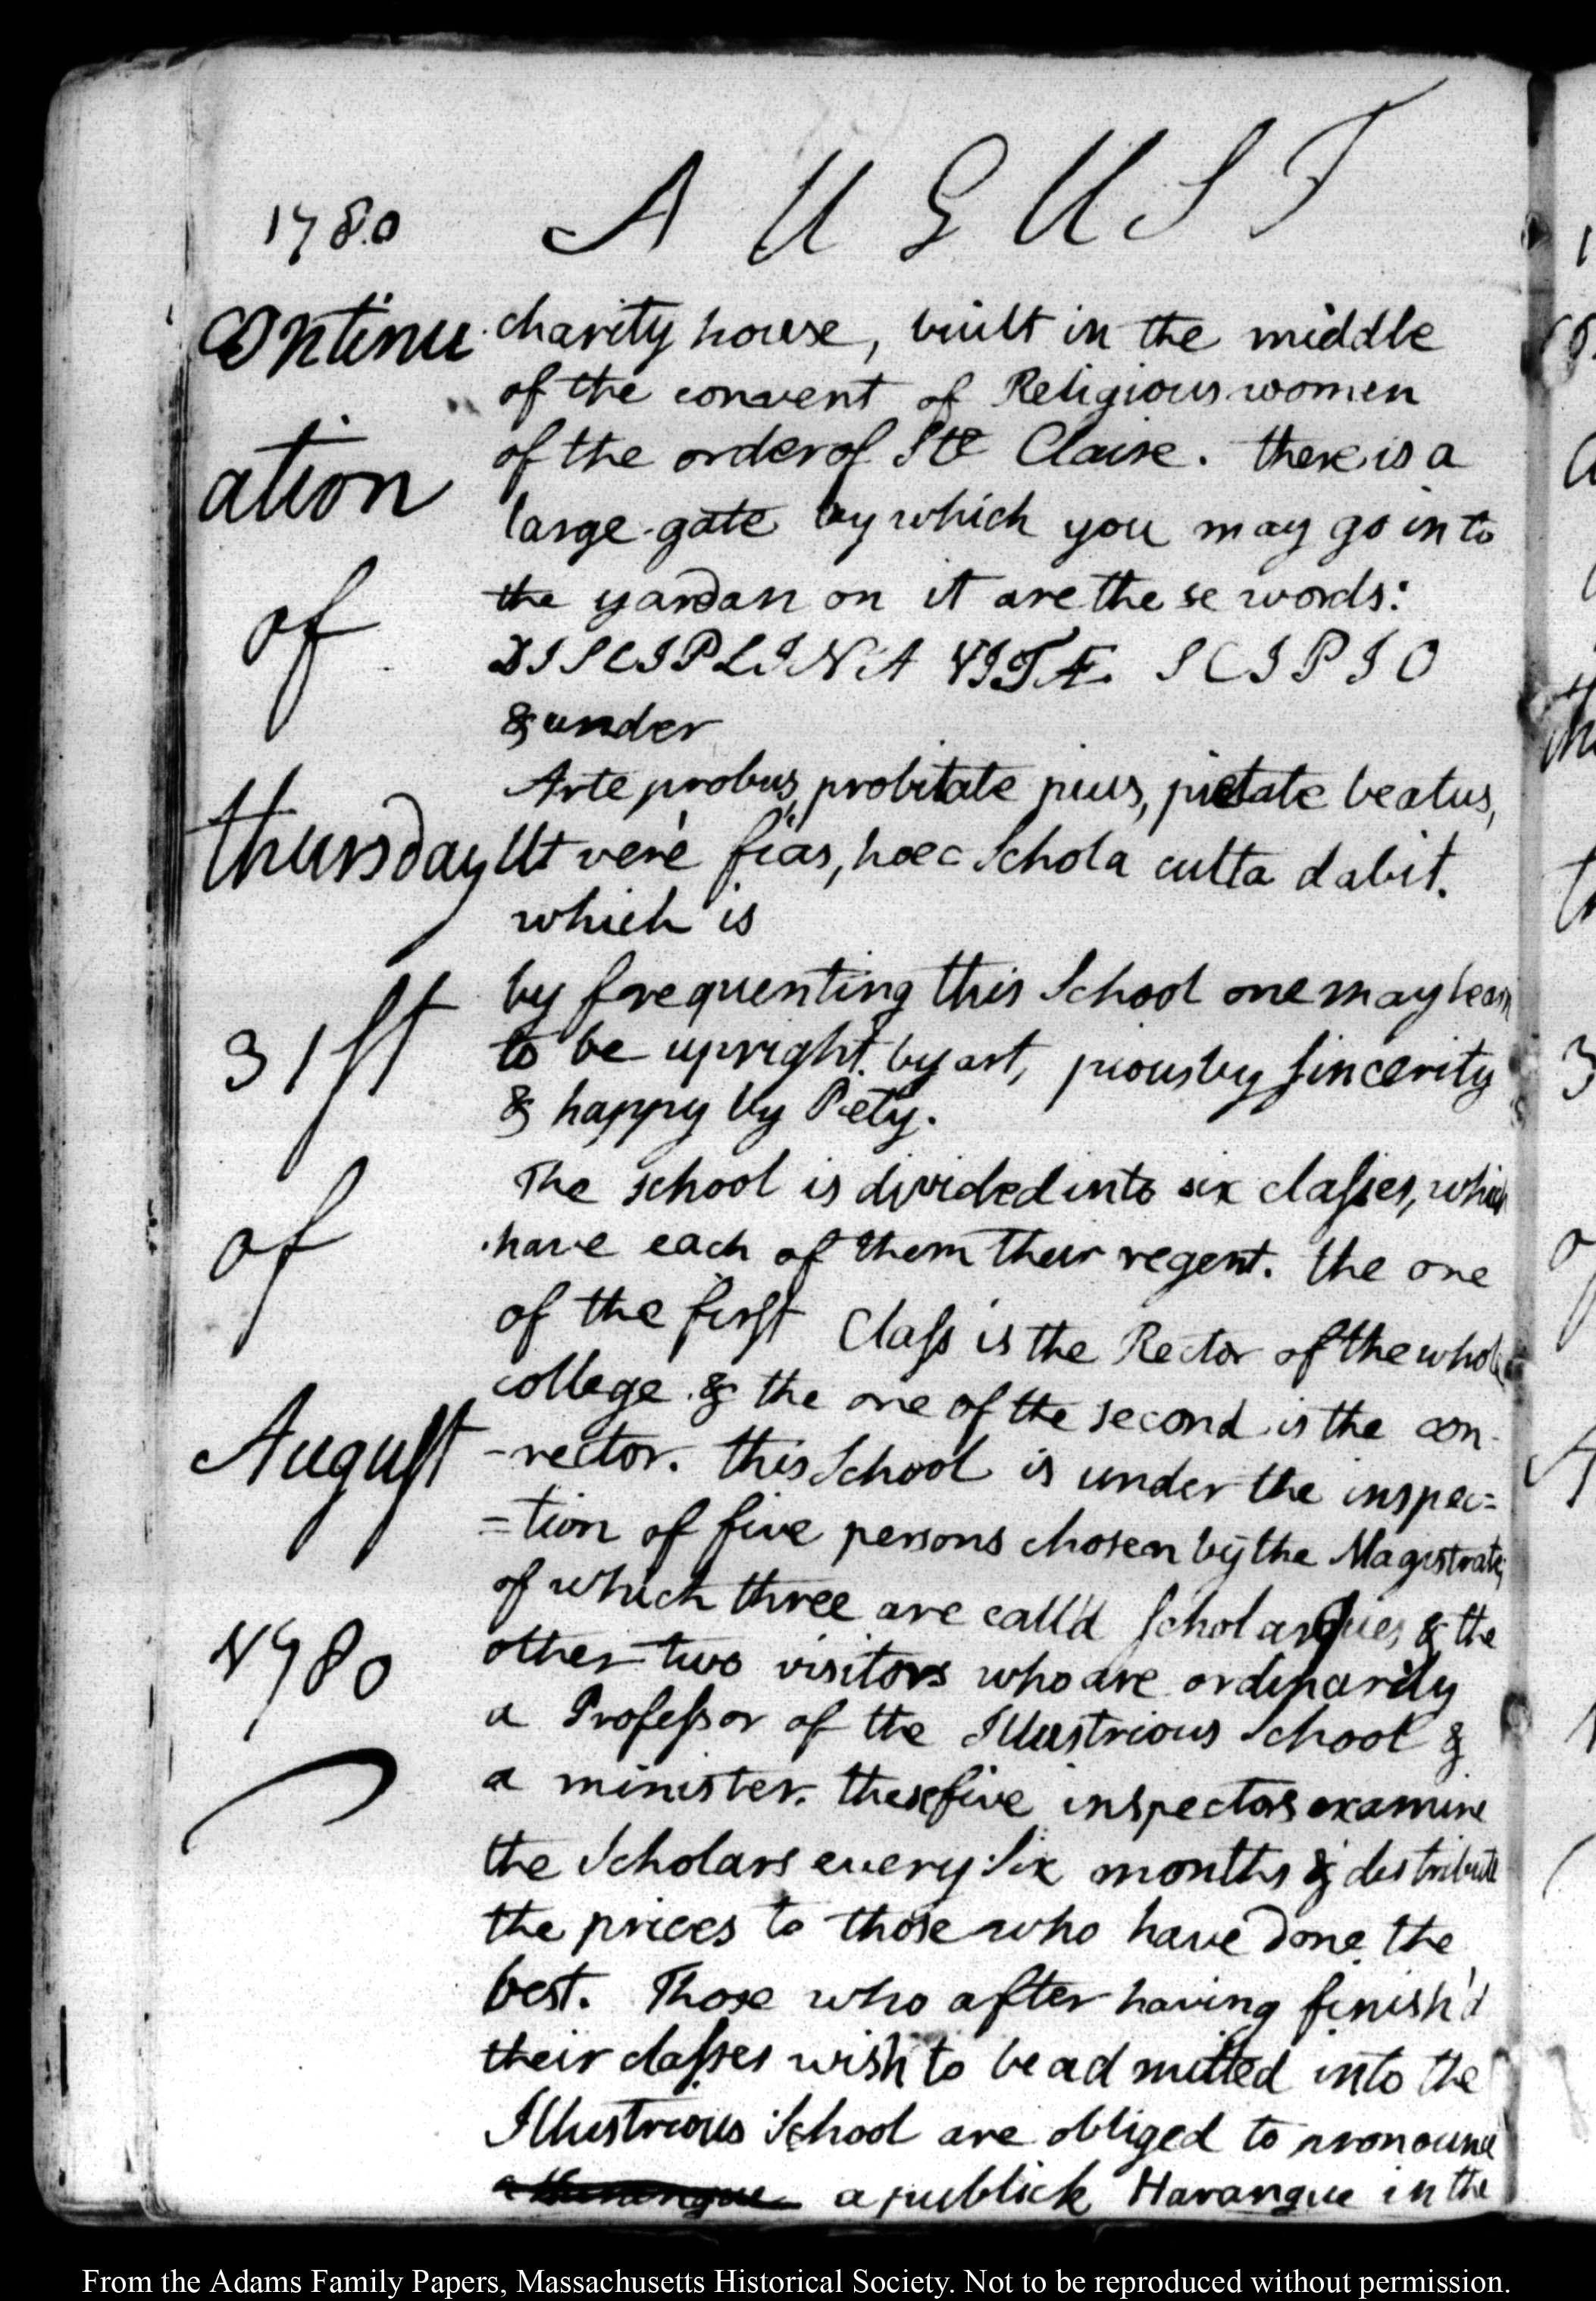 1780 AUGUST
Continu
ation
of
thursday
31st
of
August
1780
charity house, built in the middle
of the convent of Religious women
of the order of Ste Claire. there is a
large gate by which you may go into
the yard an on it are these words:
DISCIPLINA VITÆ SCIPIO
& under
Arte probus, probitate pius, pietate beatus,
Ut veré fias, hoec Schola culta dabit.
which is
by frequenting this School one may learn
to be upright by art, pious by sincerity
& happy by Piety.
The school is divided into six classes, which
have each of them their regent. the one
of the first Class is the Rector of the whole
college & the one of the second is the con-
-rector. this School is under the inspec=
=tion of five persons chosen by the Magistrates
of which three are call'd Scholarques & the
other two visitors who are ordinarily
a Professor of the Illustrious School &
a minister. these five inspectors examine
the Scholars every Six months & distribute
the prices to those who have done the
best. Those who after having finish'd
their classes wish to be admitted into the
Illustrious School are obliged to pronounce
a Harangue a publick Harangue in the
From the Adams Family Papers, Massachusetts Historical Society. Not to be reproduced without permission.